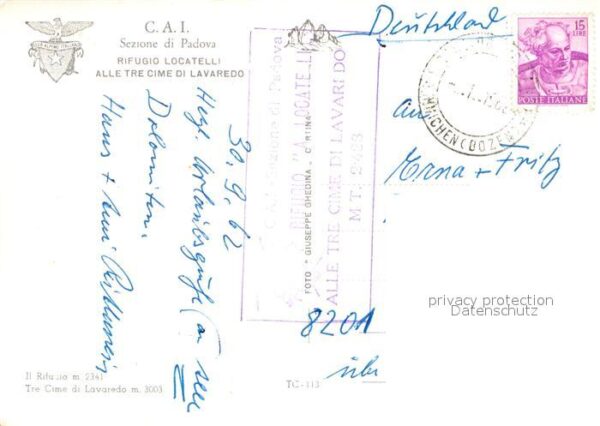 C.A.I.
Sezione di Padova
RIFUGIO LOCATELLI
ALLE TRE CIME DI LAVAREDO
30.9.62
Herzl. Urlaubsgrüße
Dolomiten.
Hans +
Il Rifugio m. 2341
Tre Cime di Lavaredo m. 3003
C.A.I. Sezione di Padova
RIFUGIO "A. LOCATELLI"
ALLE TRE CIME DI LAVAREDO
MT. 2438
FOTO GIUSEPPE GHEDINA - CORTINA
TC-113
Deutschland
15
LIRE
POSTE ITALIANE
INNICHEN (BOZEN)
an
Erna + Fritz
privacy protection
Datenschutz
8201